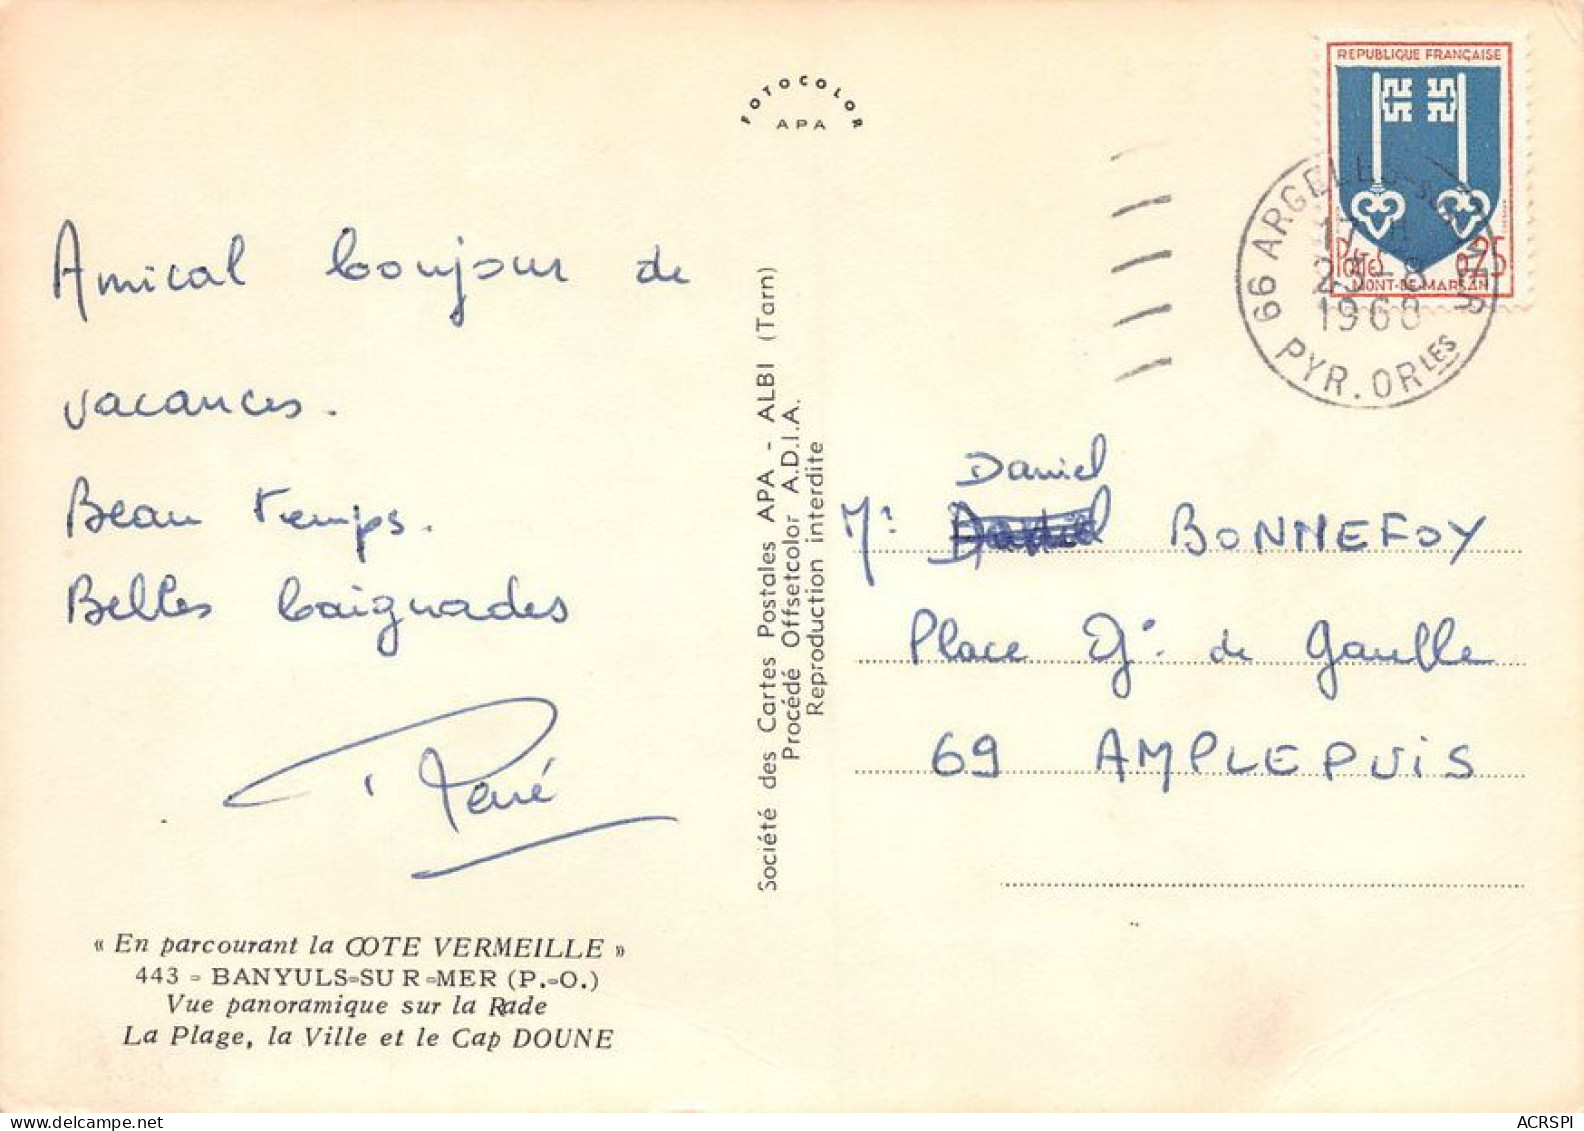 FOTOCOLOR
APA
REPUBLIQUE FRANÇAISE
Postes 0,25
MONT-DE-MARSAN
66 ARGELES-SUR-MER
PYR. ORLES
1968
Amical bonjour de
vacances.
Beau temps.
Belles baignades
René
« En parcourant la COTE VERMEILLE »
443 - BANYULS-SUR-MER (P.-O.)
Vue panoramique sur la Rade
La Plage, la Ville et le Cap DOUNE
Société des Cartes Postales APA - ALBI (Tarn)
Procédé Offsetcolor A.D.I.A.
Reproduction interdite
Daniel
Mr BONNEFOY
Place Gl de Gaulle
69 AMPLEPUIS
ACRSPI